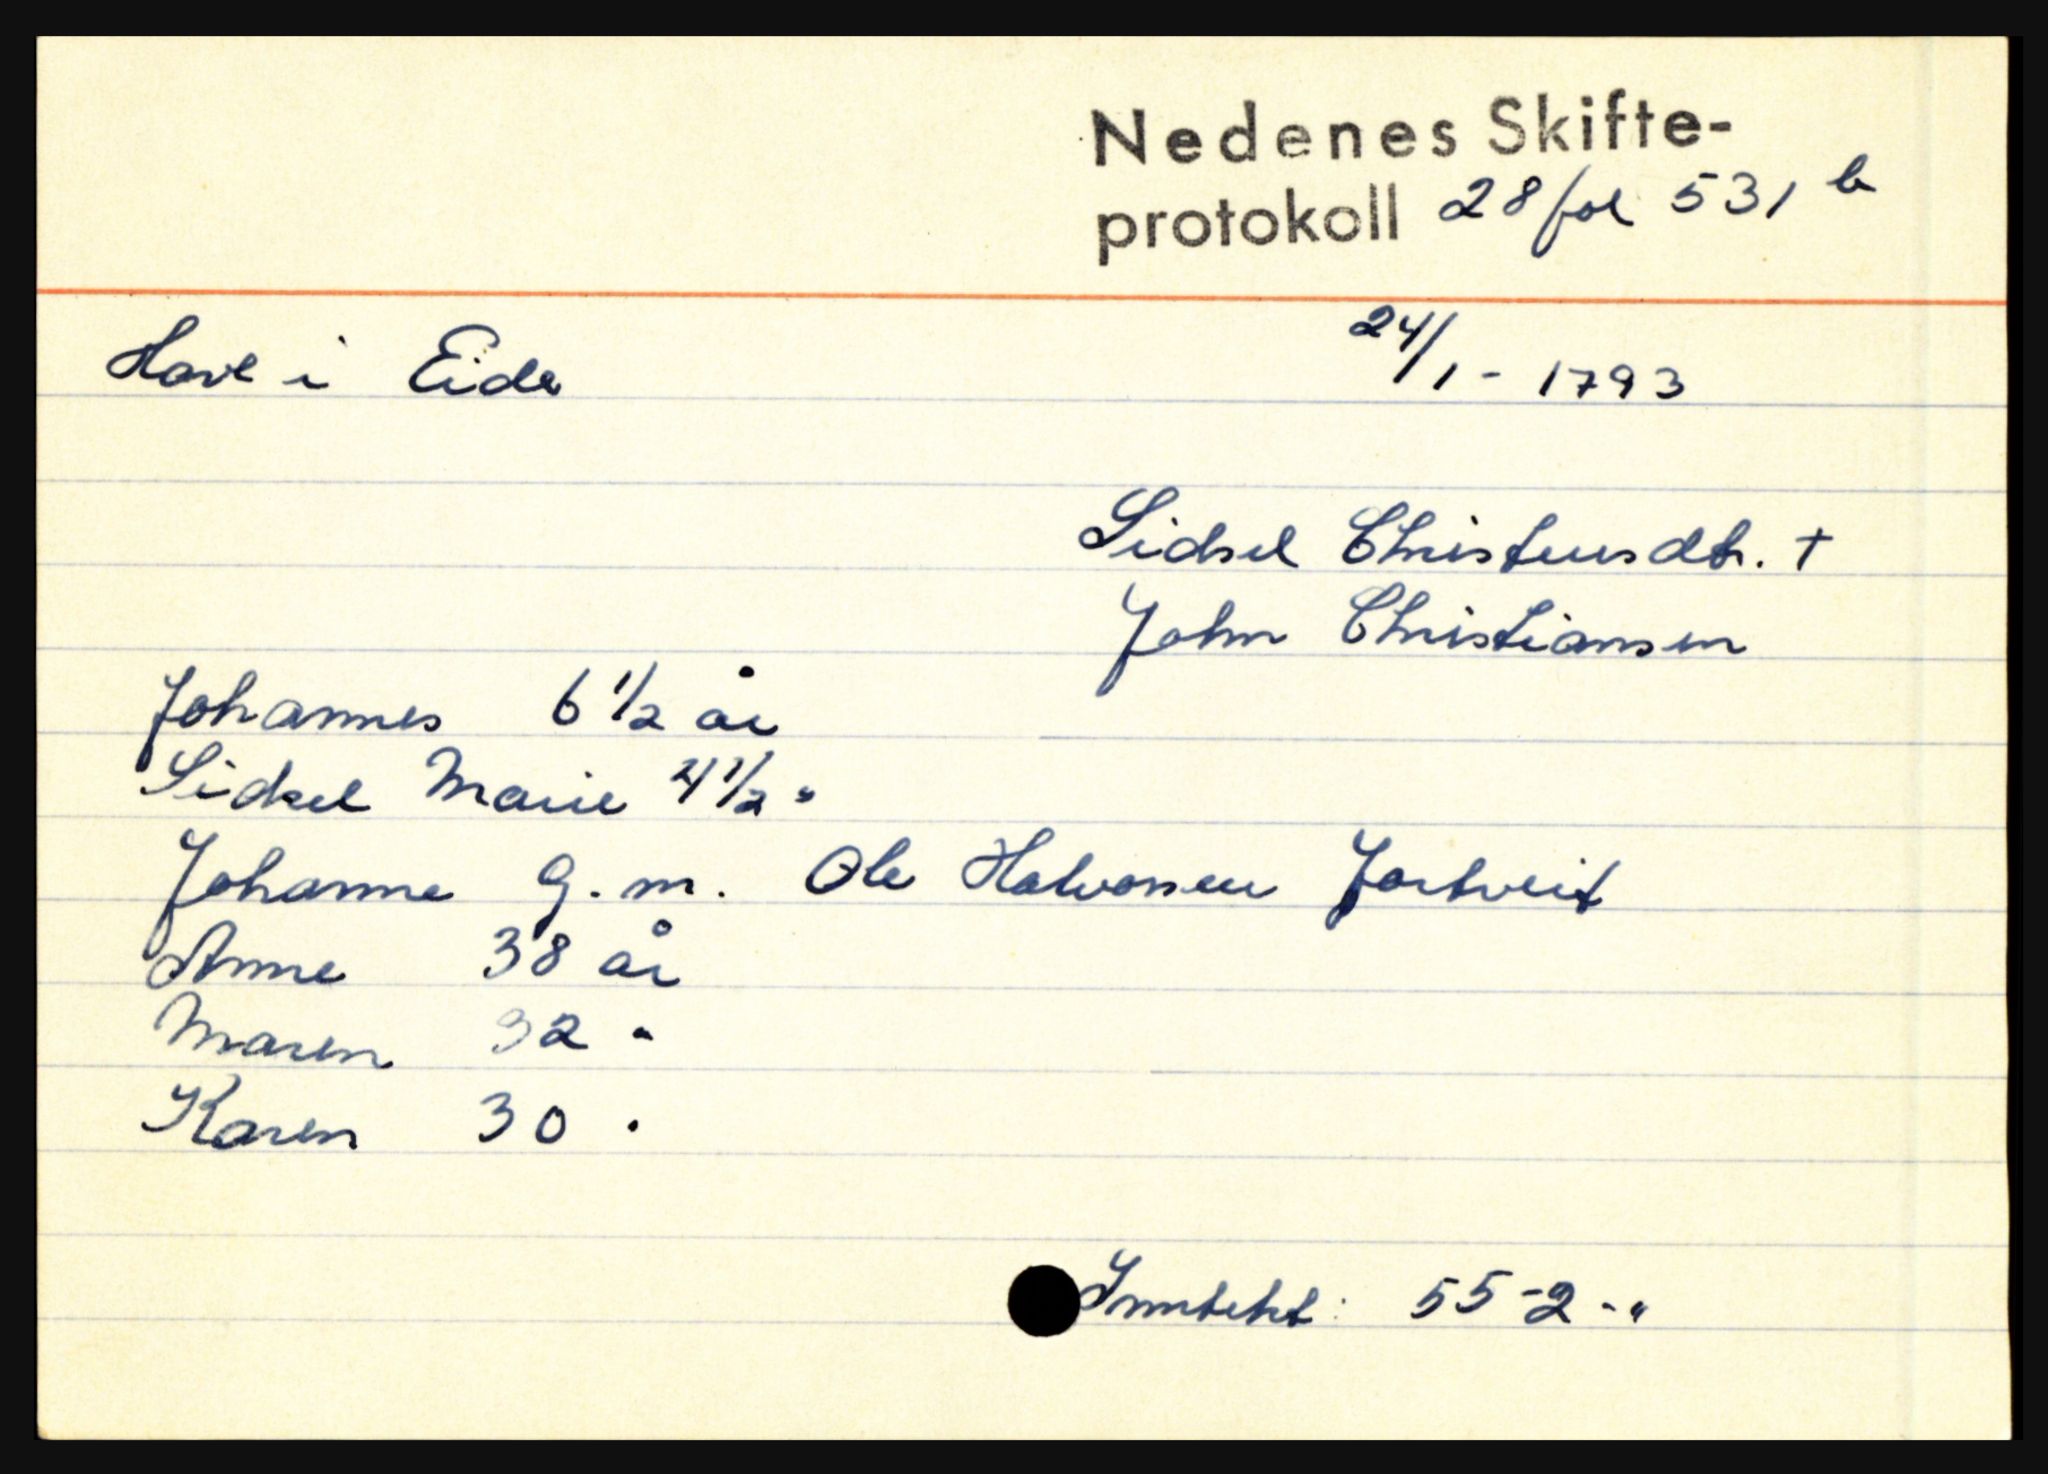 Nedenes Skifte-
protokoll 28 fol 531 b
Have i Eide 24/1 - 1793
Sidsel Christensdtr. +
John Christiansen
Johannes 6 1/2 år
Sidsel Marie 4 1/2 "
Johanne g. m. Ole Halvorsen Jortveit
Anne 38 år
Maren 32 "
Karen 30 "
Inntekt: 55-2-"